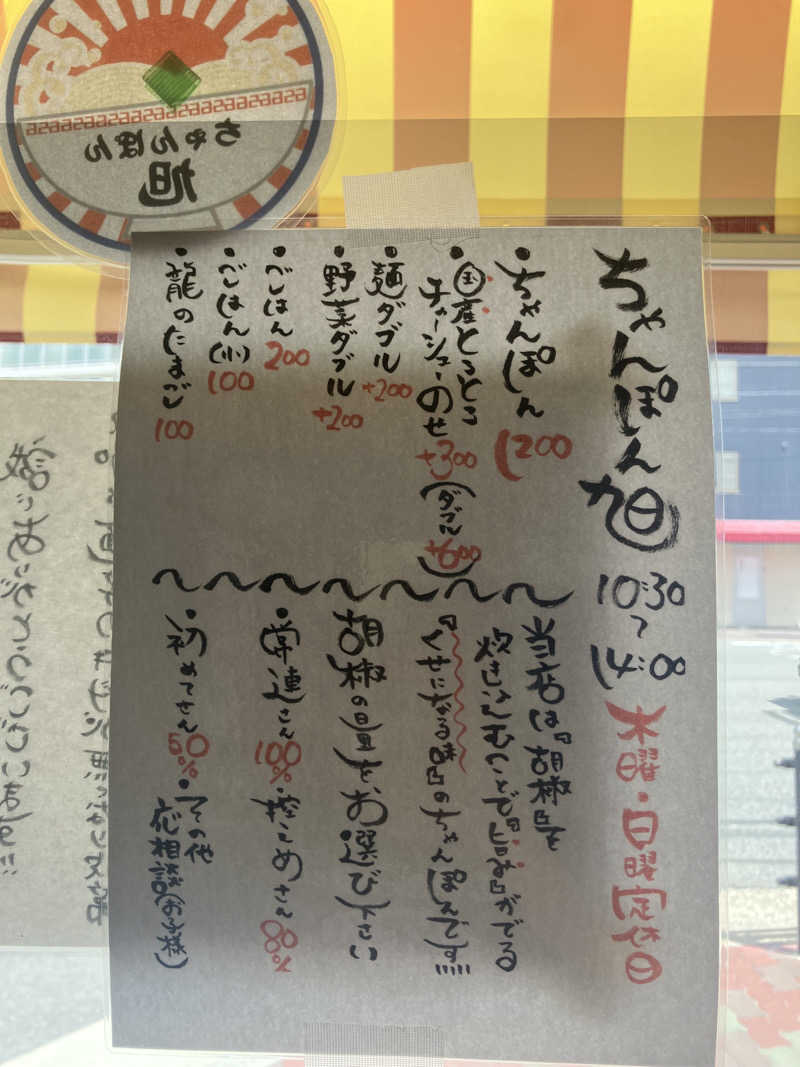 ちゃんぽん旭
10:30〜14:00
木曜・日曜定休日
・ちゃんぽん 1200
・国産とろとろ
チャーシューのせ +300 (ダブル +600)
・麺ダブル +200
・野菜ダブル +200
・ごはん 200
・ごはん(小) 100
・龍のたまご 100
当店は『胡椒』を
炊きこむことで『旨み』がでる
『くせになる味』のちゃんぽんです!!!!
胡椒の量をお選び下さい
・常連さん 100% ・控えめさん 80%
・初めてさん 50% ・その他
応相談(お子様)
ちゃんぽん
旭